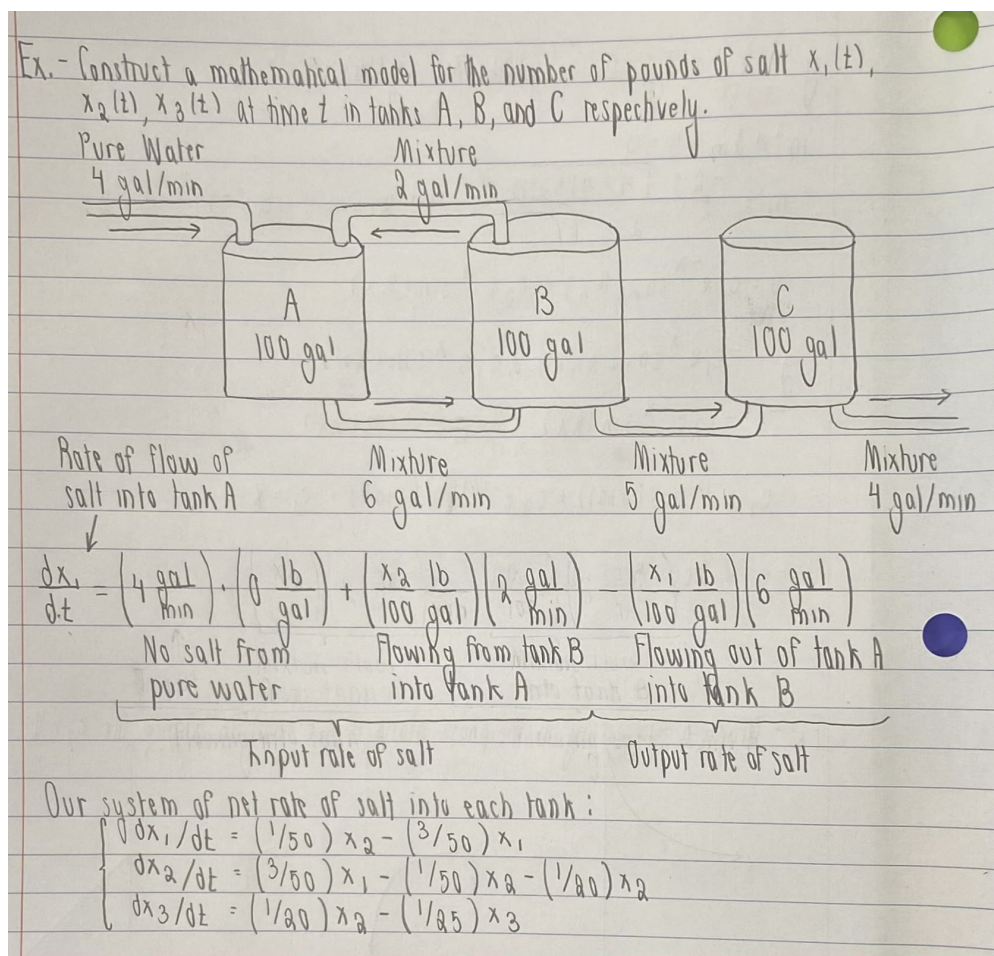 Ex.- Construct a mathematical model for the number of pounds of salt x₁(t),
x₂(t), x₃(t) at time t in tanks A, B, and C respectively.
Pure Water Mixture
4 gal/min 2 gal/min
A B C
100 gal 100 gal 100 gal
Rate of flow of Mixture Mixture Mixture
salt into tank A 6 gal/min 5 gal/min 4 gal/min
dx₁/dt = (4 gal/min)·(0 lb/gal) + (x₂/100 lb/gal)(2 gal/min) − (x₁/100 lb/gal)(6 gal/min)
No salt from Flowing from tank B Flowing out of tank A
pure water into tank A into tank B
Input rate of salt Output rate of salt
Our system of net rate of salt into each tank:
dx₁/dt = (1/50)x₂ − (3/50)x₁
dx₂/dt = (3/50)x₁ − (1/50)x₂ − (1/20)x₂
dx₃/dt = (1/20)x₂ − (1/25)x₃